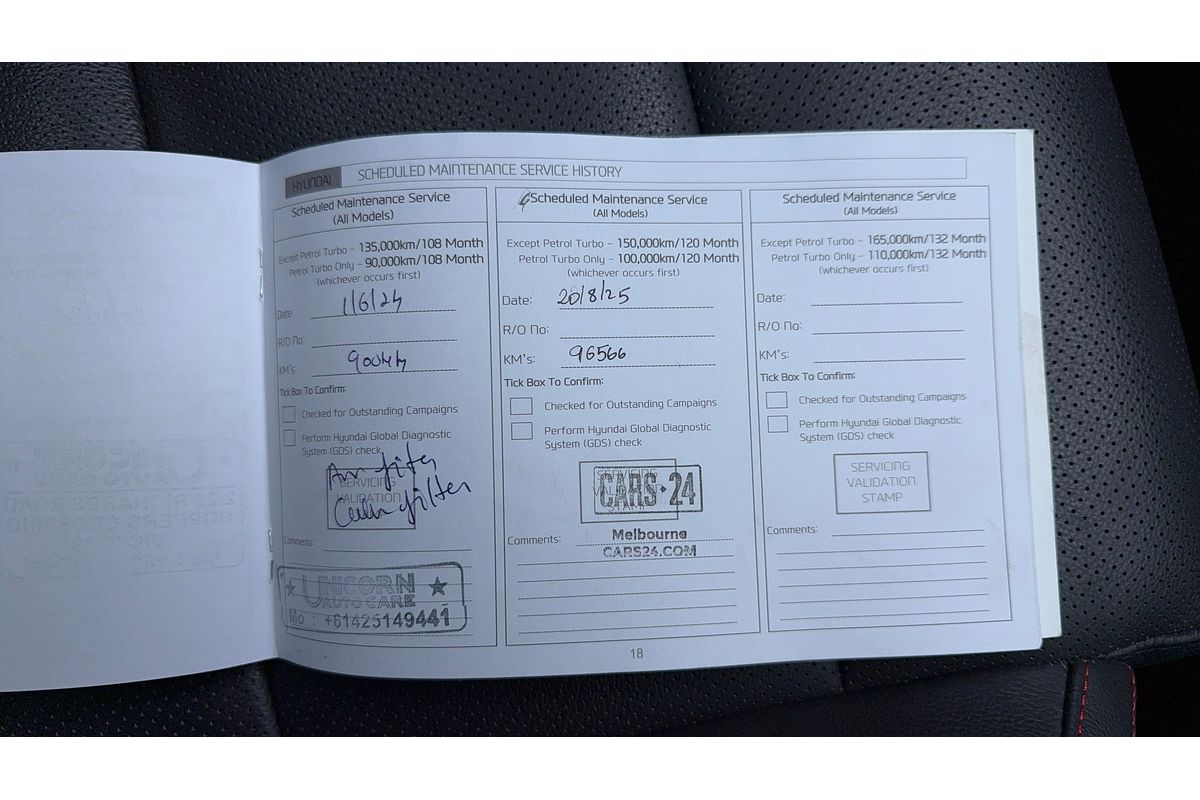 HYUNDAI SCHEDULED MAINTENANCE SERVICE HISTORY
Scheduled Maintenance Service
(All Models)
Except Petrol Turbo - 135,000km/108 Month
Petrol Turbo Only - 90,000km/108 Month
(whichever occurs first)
Date: 1/6/24
R/O No:
KM's:
Tick Box To Confirm:
Checked for Outstanding Campaigns
Perform Hyundai Global Diagnostic
System (GDS) check
SERVICING
VALIDATION
filter
Comments:
UNICORN
AUTO CARE
Mo : +61425149441
Scheduled Maintenance Service
(All Models)
Except Petrol Turbo - 150,000km/120 Month
Petrol Turbo Only - 100,000km/120 Month
(whichever occurs first)
Date: 20/8/25
R/O No:
KM's: 96566
Tick Box To Confirm:
Checked for Outstanding Campaigns
Perform Hyundai Global Diagnostic
System (GDS) check
SERVICING
VALIDATION
STAMP
CARS·24
Melbourne
Comments:
CARS24.COM
Scheduled Maintenance Service
(All Models)
Except Petrol Turbo - 165,000km/132 Month
Petrol Turbo Only - 110,000km/132 Month
(whichever occurs first)
Date:
R/O No:
KM's:
Tick Box To Confirm:
Checked for Outstanding Campaigns
Perform Hyundai Global Diagnostic
System (GDS) check
SERVICING
VALIDATION
STAMP
Comments:
18